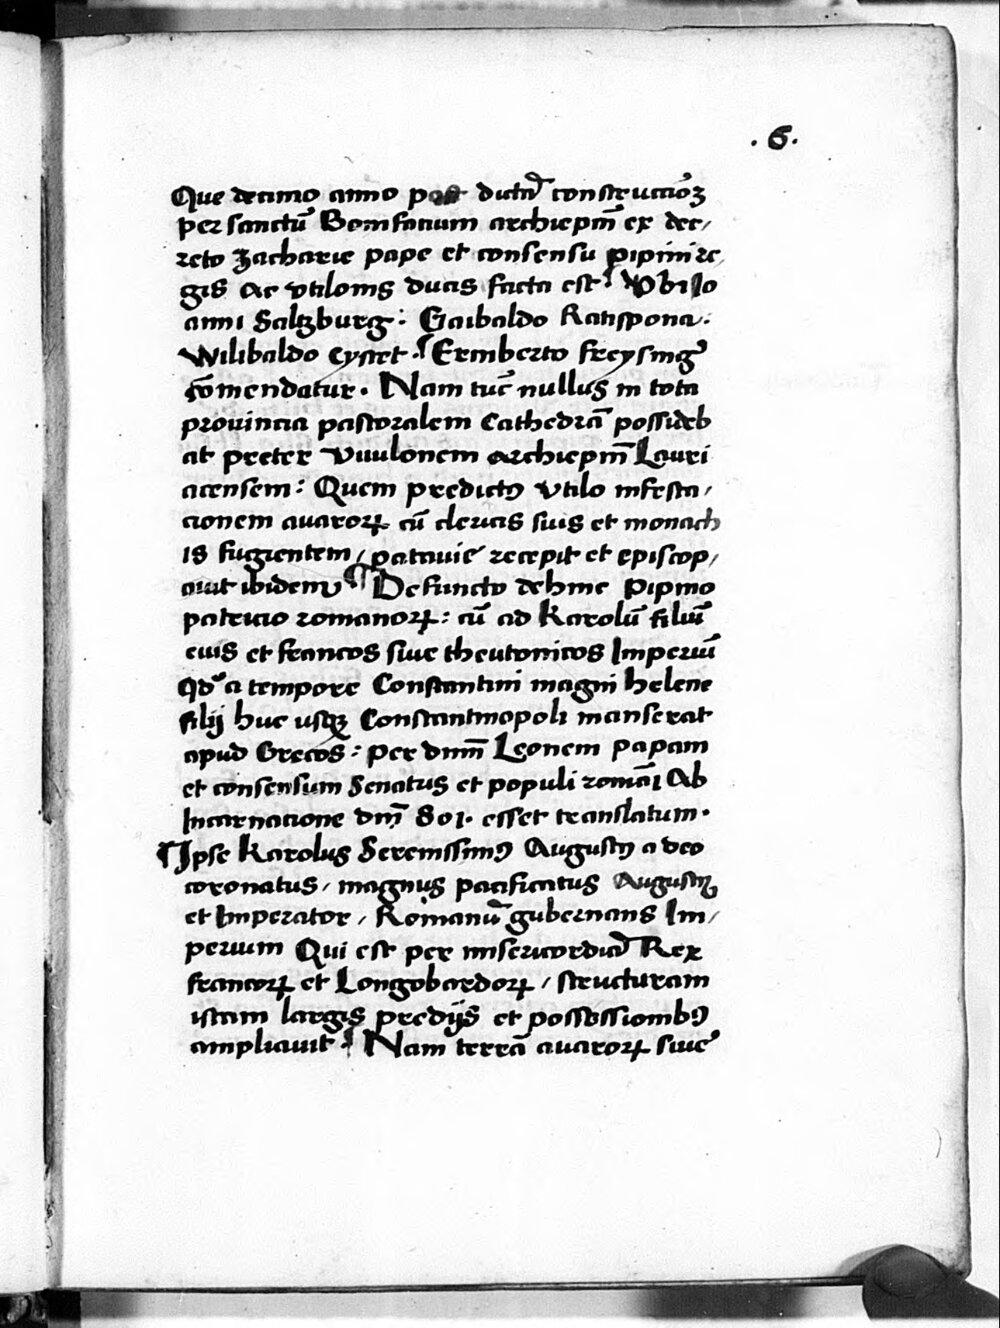 .6.
Que decimo anno post dictā constructiōʒ
per sanctū Bonifacium archiepm̄ ex dec/
reto zacharie pape et consensu pipini re
gis ac vtilonis ducis facta est ¶ Vbi Jo
anni Saltzburg: Gaibaldo Ratispona:
Wilibaldo Eystet. Erimberto freysinḡ
cōmendatur. Nam tūc nullus in tota
prouincia pastoralem Cathedrā possideb
at preter Viuulonem archiepm̄ Lauri
acensem: Quem predictꝰ vtilo infesta/
cionem auaroꝝ cū clericis suis et monach
is fugientem / patauie recepit et episcop/
auit ibidem ¶ Defuncto dehinc Pipino
patricio romanoꝝ: cū ad Karolū filiū
eius et francos siue theutonicos Imperiū
qd̓ a tempore Constantini magni helene
filij huc usqꝫ Constantinopoli manserat
apud Grecos: per dnm̄ Leonem papam
et consensum Senatus et populi romāi Ab
Incarnacione dnī 801. esset translatum.
¶ Ipse Karolus Serenissimꝰ Augustꝰ a deo
coronatus / magnus pacificatus Augustꝰ
et Imperator / Romanū gubernans Im/
perium Qui est per misericordiā Rex
francoꝝ et Longobardoꝝ / structuram
istam largis predijs et possessionibꝰ
ampliauit ¶ Nam terrā auaroꝝ siue